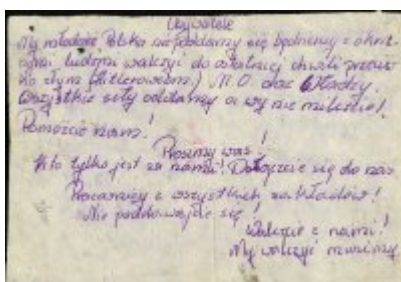 Obywatele
My młodzież Polska nie poddamy się będziemy z okrut
ludem walczyć do ostatniej chwili przeciw
ko złym (Hitlerowcom.) M.O. oraz Władzy.
Wszystkie siły oddamy a wy nie milczcie!
Pomóżcie nam!
Prosimy was!
Kto tylko jest za nami! Dołączcie się do nas
Pracownicy z wszystkich zakładów!
Nie poddawajcie się!
Walczcie z nami!
My walczyć musimy